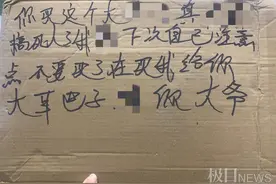 你买这个大 真
搞死人了我 下次自己注意
点不要买了在买我给你
大草巴子 你大爷
极目NEWS